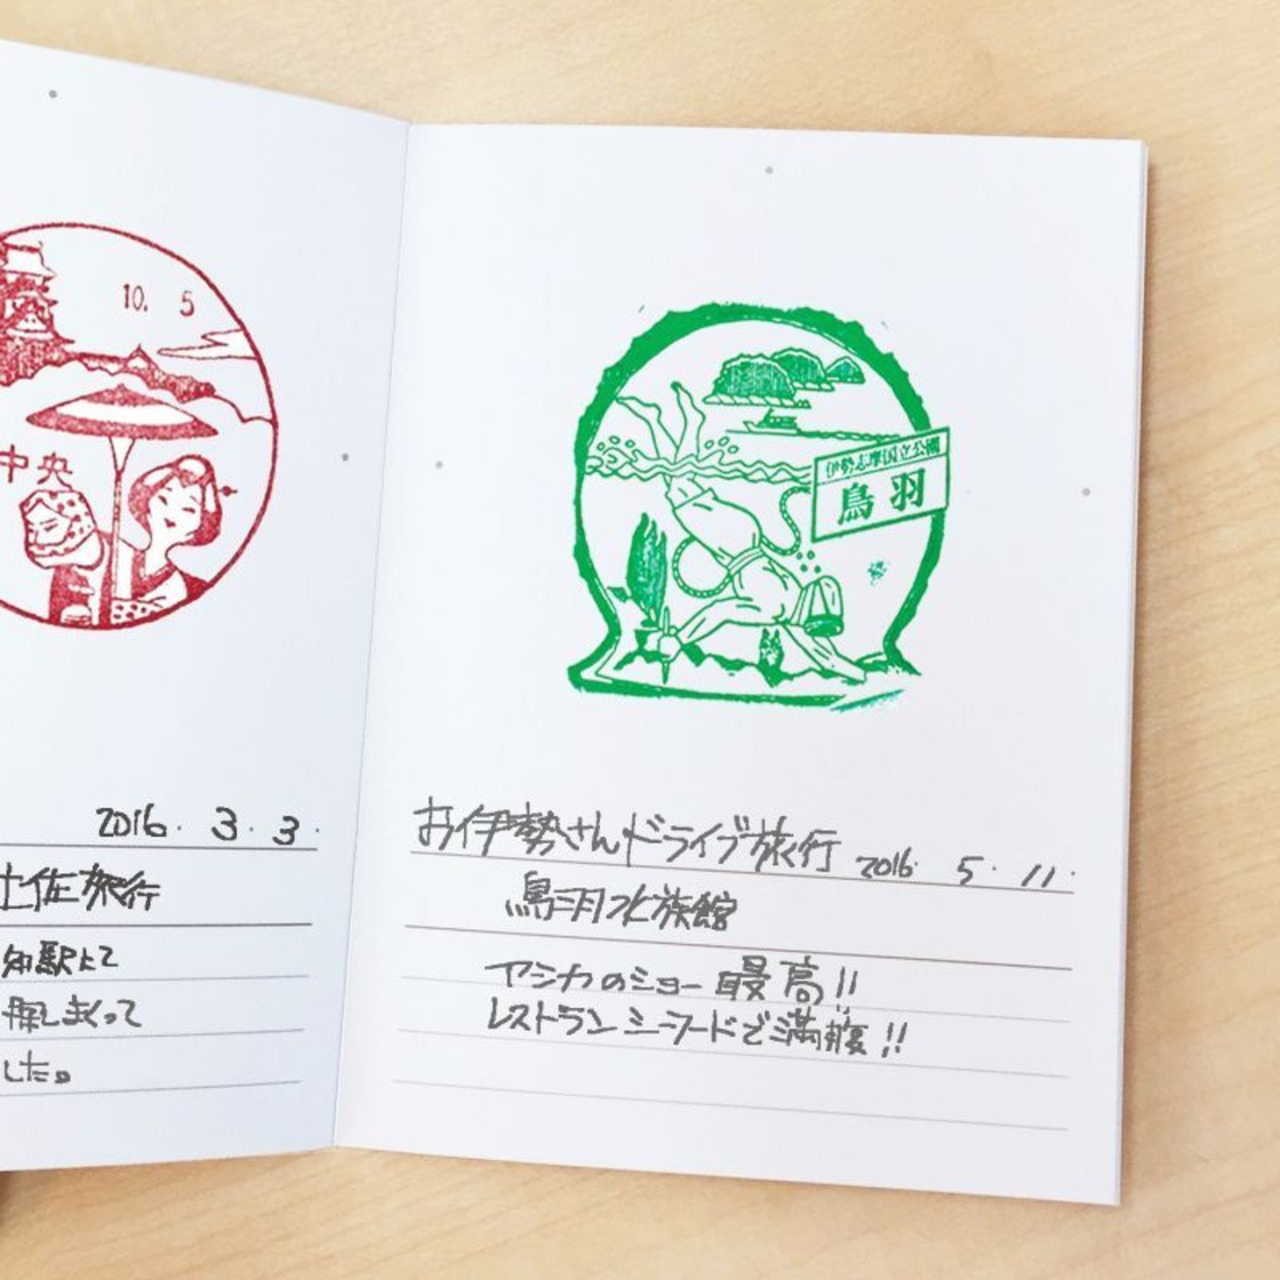 10. 5
中央
2016. 3. 3.
土佐旅行
知駅にて
探しまくって
した。
伊勢志摩国立公園
鳥羽
お伊勢さんドライブ旅行 2016. 5. 11.
鳥羽水族館
アシカのショー最高!!
レストラン シーフードで満腹!!